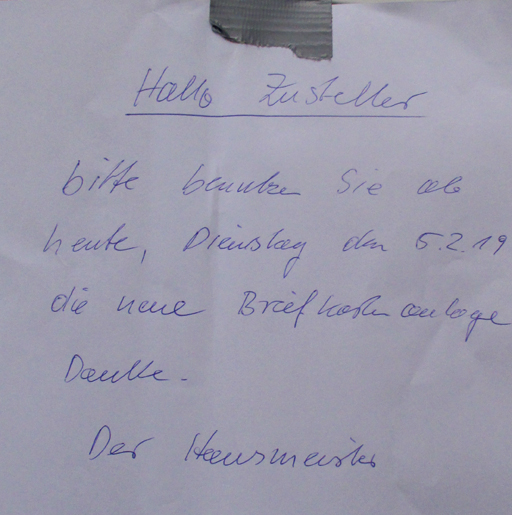 Hallo Zusteller
bitte benutzen Sie ab
heute, Dienstag den 5.2.19
die neue Briefkastenanlage
Danke.
Der Hausmeister